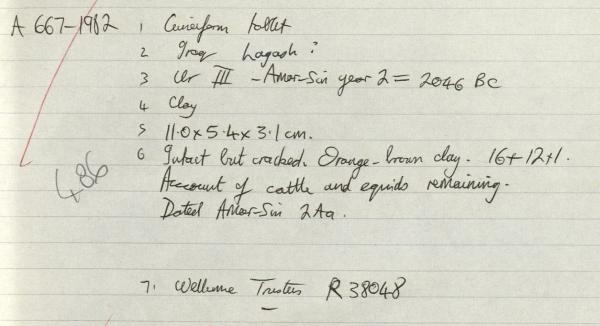 A 667-1982 1 Cuneiform tablet
2 Iraq Lagash?
3 Ur III - Amar-Sin year 2 = 2046 BC
4 Clay
5 11.0 x 5.4 x 3.1 cm.
6 Intact but cracked. Orange-brown clay. 16 + 12 + 1.
486
Account of cattle and equids remaining.
Dated Amar-Sin 2 Aa.
7. Wellcome Trustees R 38048